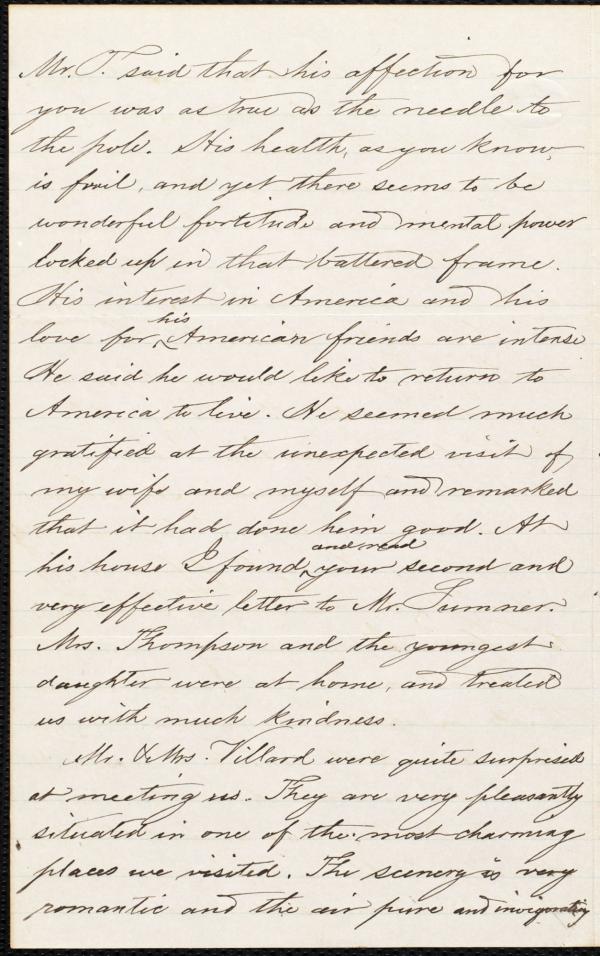 Mr. T. said that his affection for
you was as true as the needle to
the pole. His health, as you know,
is frail, and yet there seems to be
wonderful fortitude and mental power
locked up in that battered frame.
His interest in America and his
love for his American friends are intense
He said he would like to return to
America to live. He seemed much
gratified at the unexpected visit of
my wife and myself and remarked
that it had done him good. At
his house I found and read your second and
very effective letter to Mr. Sumner.
Mrs. Thompson and the youngest
daughter were at home, and treated
us with much kindness.
Mr. & Mrs. Villard were quite surprised
at meeting us. They are very pleasantly
situated in one of the most charming
places we visited. The scenery is very
romantic and the air pure and invigorating